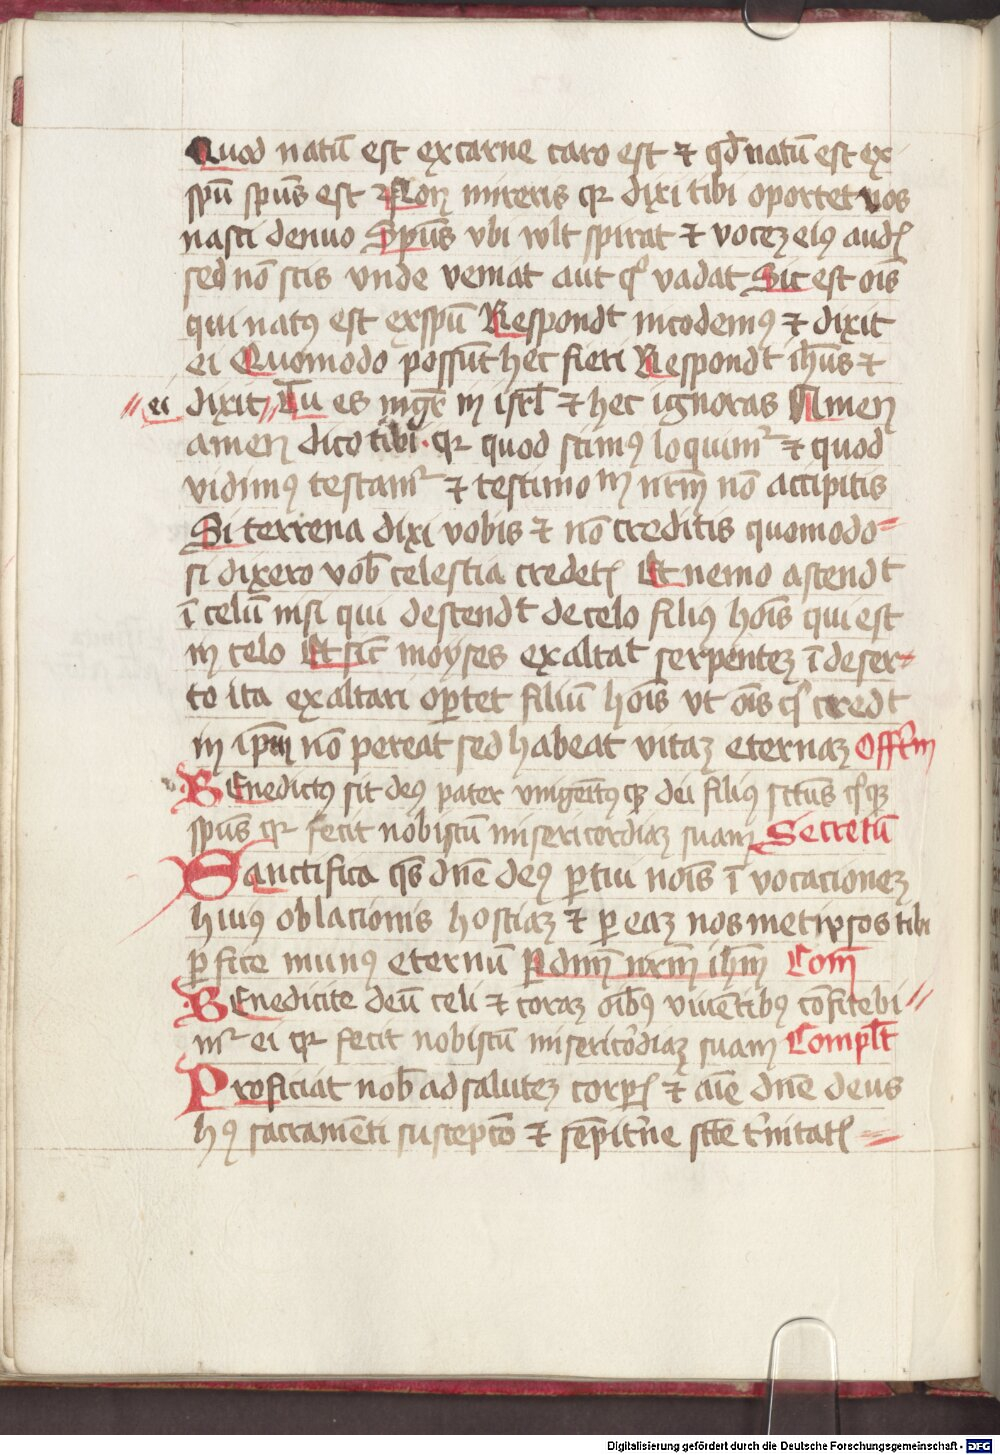 Quod natū est ex carne caro est ⁊ qd̄ natū est ex
spū spūs est Non mireris qꝛ dixi tibi oportet vos
nasci denuo Spūs vbi wlt spirat ⁊ voceꝫ eiꝰ audꝭ
sed nō scis vnde veniat aut qͦ vadat Sic est oīs
qui natꝰ est ex spū Respondt nicodemꝰ ⁊ dixit
ei Quomodo possūt hec fieri Respondt ih̄us ⁊
// ei dixit // Tu es mgr̄ in isrl̄ ⁊ hec ignoras Amen
amen dico tibi · qꝛ quod scimꝰ loquimᷣ ⁊ quod
vidimꝰ testamᷣ ⁊ testimoīm nrm̄ nō accipitis
Si terrena dixi vobis ⁊ nō creditis quomodo=
si dixero vob̄ celestia credetꝭ Et nemo ascendt
ī celū nisi qui descendt de celo filiꝰ hoīs qui est
in celo Et sic̄ moyses exaltat serpenteꝫ ī deser=
to ita exaltari oꝑtet filiū hoīs vt oīs qͥ credt
in ip̄m nō pereat sed habeat vitaꝫ eternaꝫ Offr̄m
BEnedictꝰ sit deꝰ pater vnigenitꝰqꝫ dei filiꝰ sctūs qͦqꝫ
spūs qꝛ fecit nobiscū misericordiaꝫ suam Secretū
Sanctifica qs̄ dn̄e deꝰ ꝑ tui noīs ī vocacioneꝫ
huiꝰ oblacionis hostiaꝫ ⁊ ꝑ eaꝫ nosmetipsos tibi
ꝑfice munꝰ eternū P dn̄m nrm̄ ih̄m Com̄
BEnedicite deū celi ⁊ coraꝫ oīb̄ꝰ viuētibꝰ cōfitebi//
mᷣ ei qꝛ fecit nobiscū misericōdiaꝫ suam Compl̄t
Proficiat nob̄ ad saluteꝫ corpꝭ ⁊ aīe dn̄e deus
hꝰ sacramēti susceptō ⁊ sēpit̄ne scte t̄nitatꝭ =
Digitalisierung gefördert durch die Deutsche Forschungsgemeinschaft - DFG